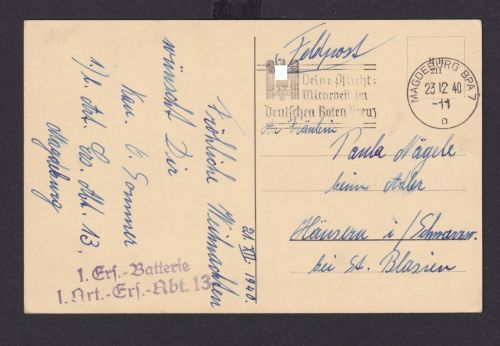 Fröhliche Weihnachten
wünscht Dir
Kan. O. Sommer
1)/. Art. Ers. Abt. 13.
Magdeburg
21. XII. 1940.
1. Ers.-Batterie
1. Art.-Ers.-Abt. 13
Feldpost
Deine Pflicht:
Mitarbeit im
Deutschen Roten Kreuz
MAGDEBURG BPA 7
23 12 40
-11
o
Fräulein
Paula Nägele
beim Adler
Häusern i/Schwarzw.
bei St. Blasien